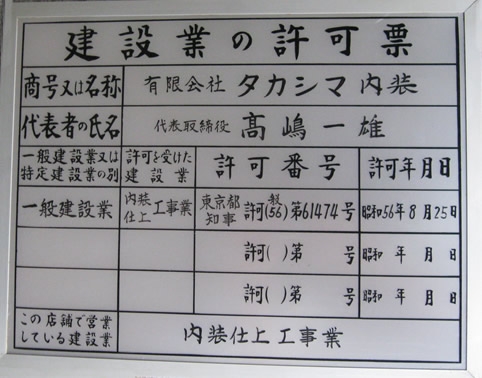 建設業の許可票
商号又は名称 有限会社 タカシマ内装
代表者の氏名 代表取締役 髙嶋一雄
一般建設業又は特定建設業の別 許可を受けた建設業 許可番号 許可年月日
一般建設業 内装仕上工事業 東京都知事 許可(般56)第61474号 昭和56年8月25日
許可( )第 号 昭和 年 月 日
許可( )第 号 昭和 年 月 日
この店舗で営業している建設業 内装仕上工事業